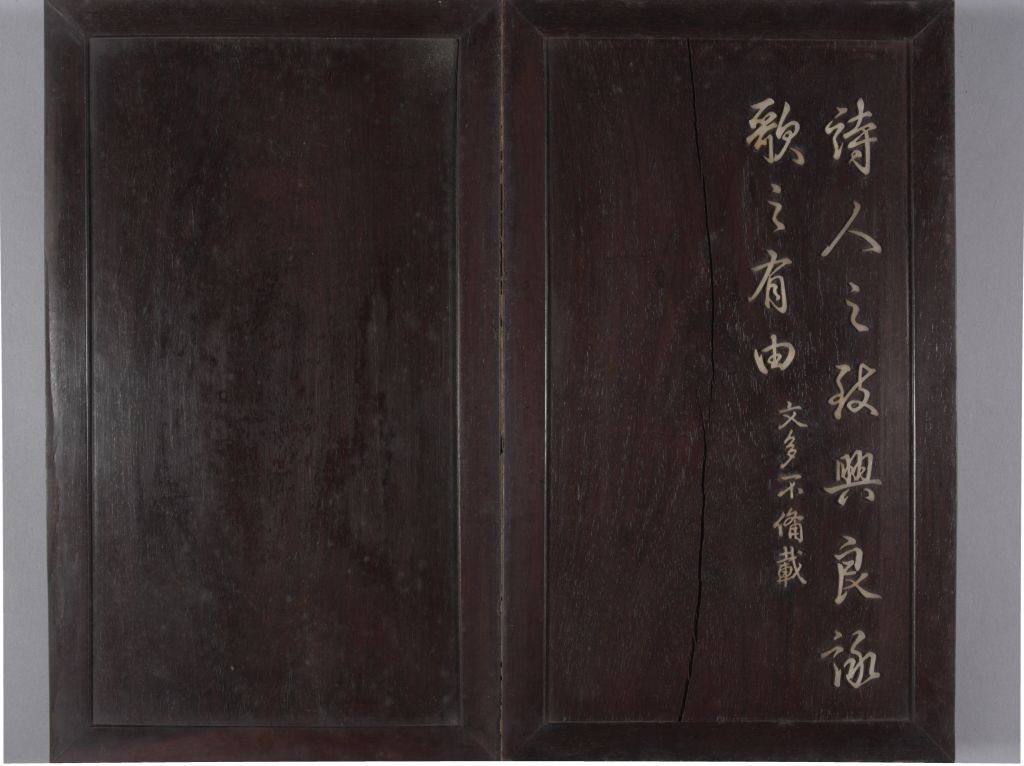 詩人之致興良詠
歌之有由文多不備載